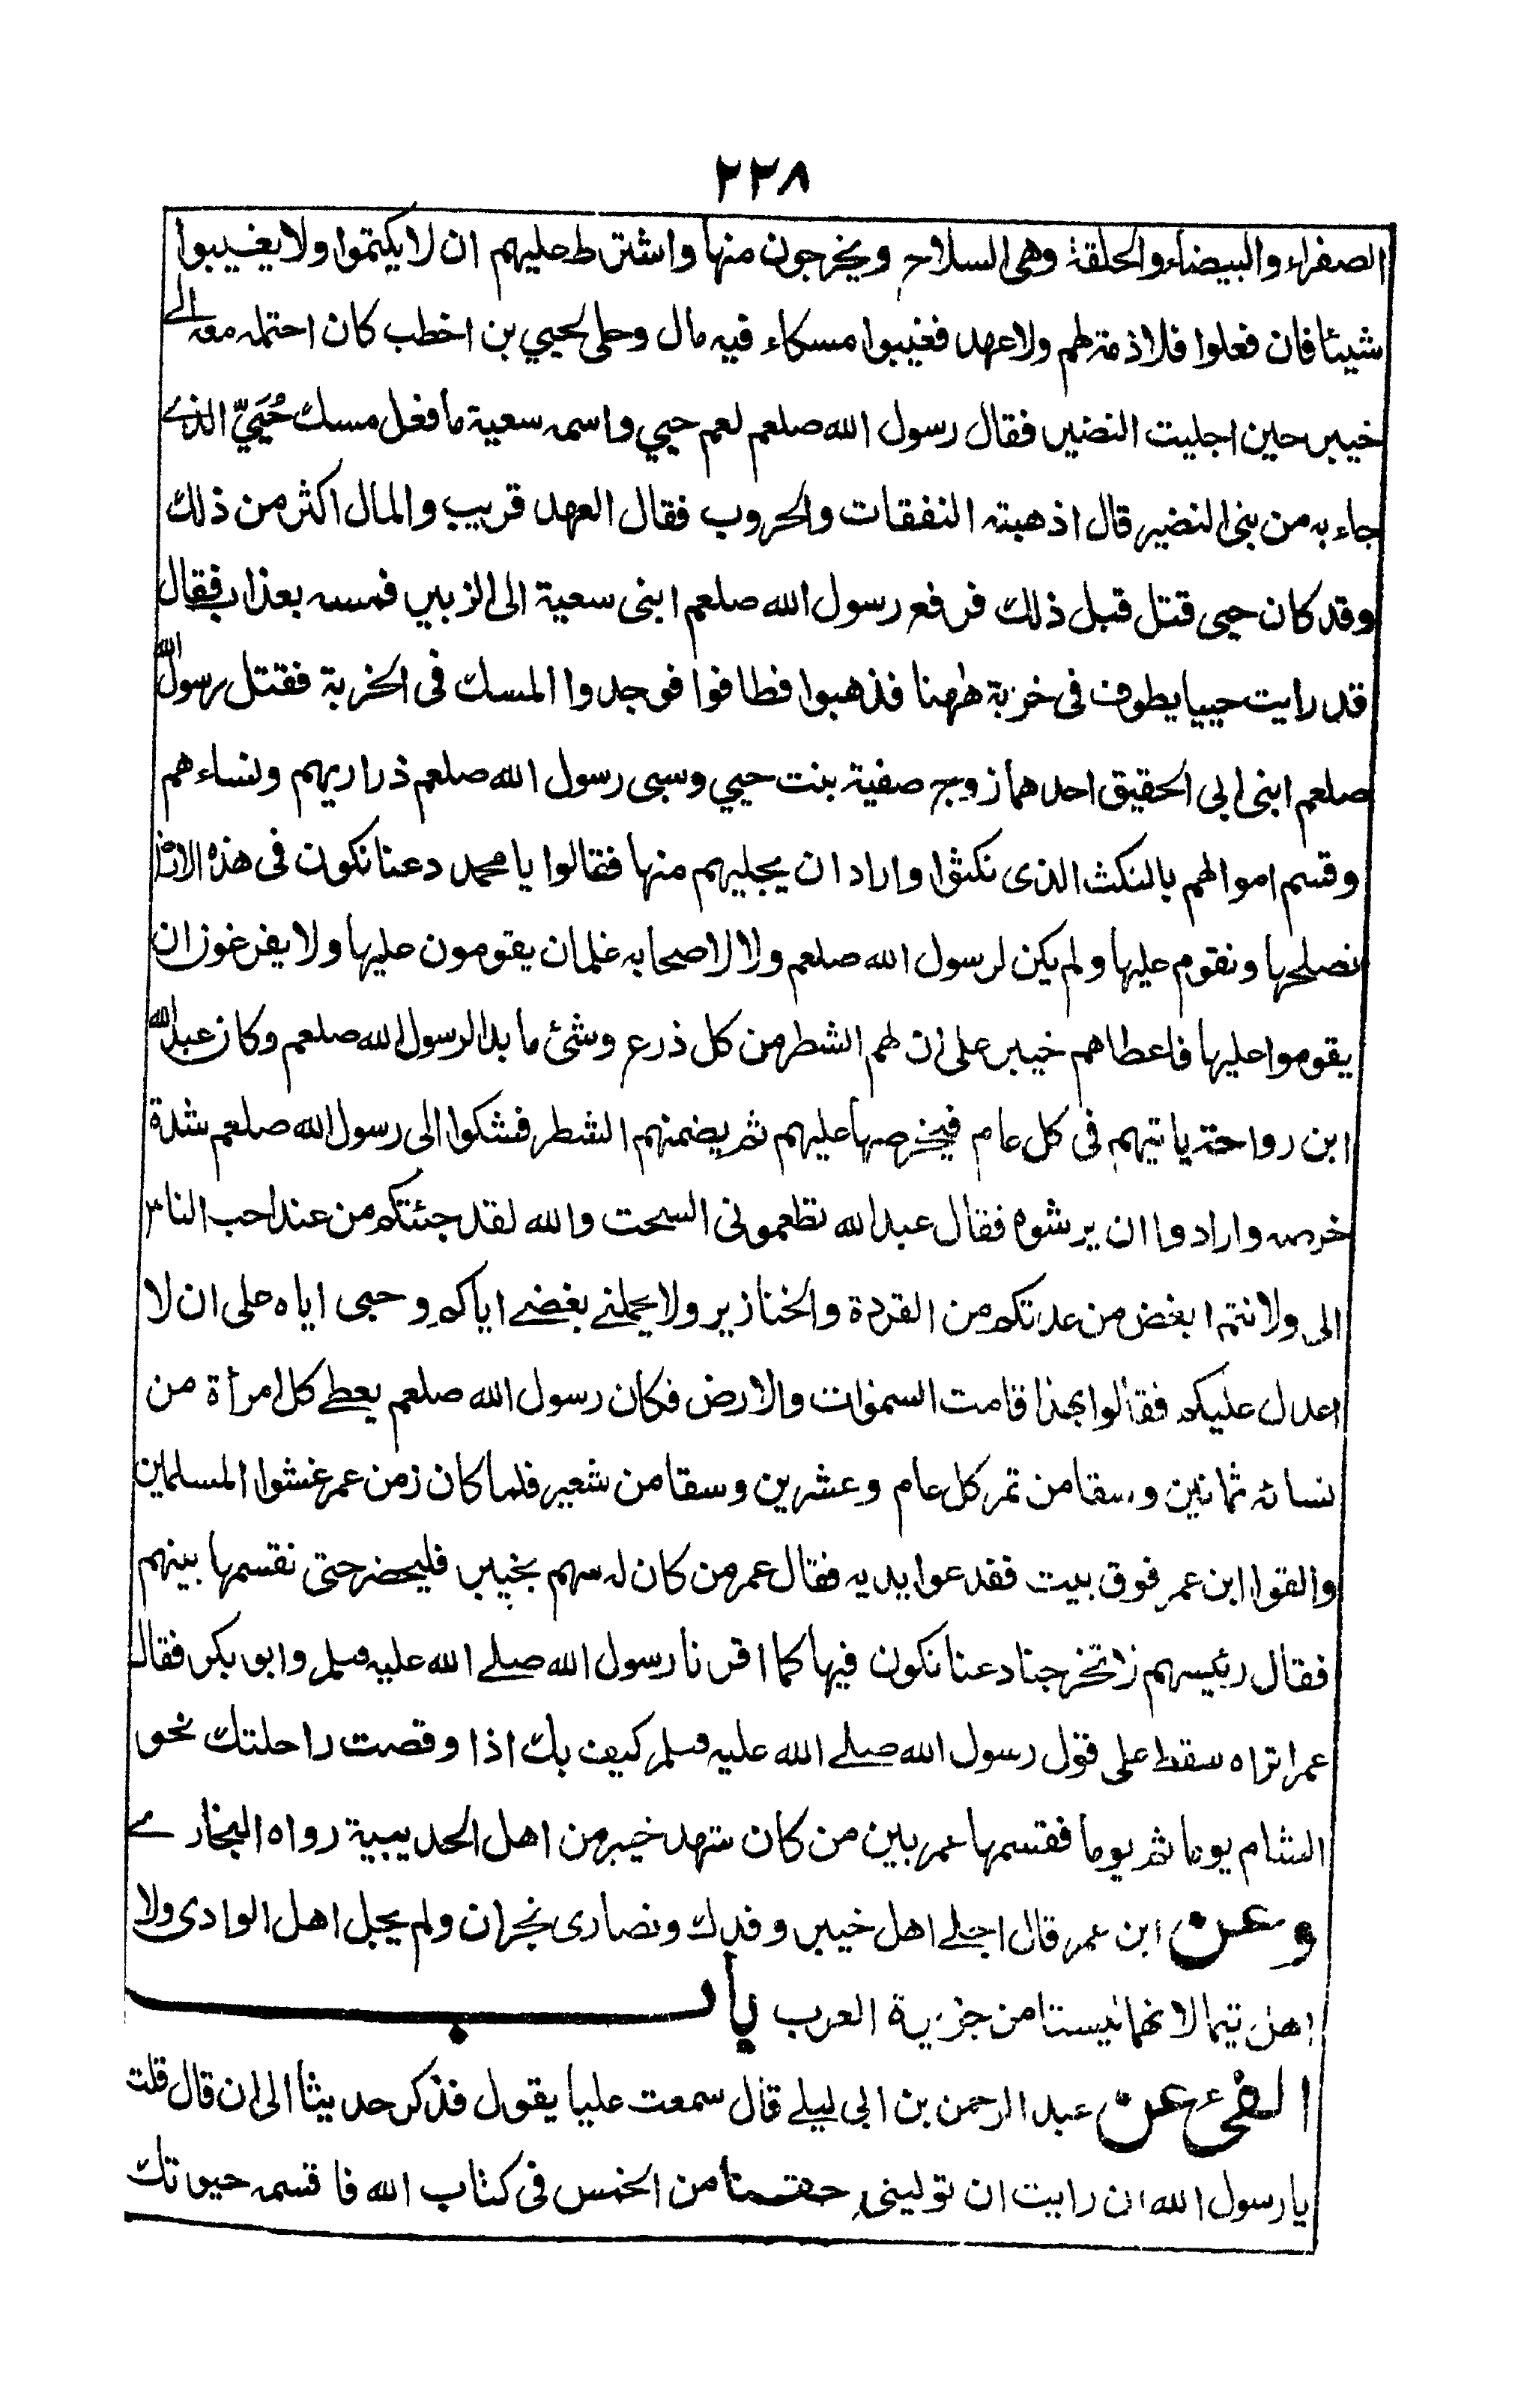 ٢٢٨
الصفراء والبيضاء والحلقة وهى السلاح ويخرجون منها واشترط عليهم ان لا يكتموا ولا يغيبوا
شيئا فان فعلوا فلا ذمة لهم ولا عهد فغيبوا مسكاء فيه مال وحلى لحيي بن اخطب كان احتمله معه الے
خيبر حين اجليت النضير فقال رسول الله صلعم لعم حيي واسمه سعية ما فعل مسك حُيَيّ الذے
جاء به من بنى النضير قال اذهبته النفقات والحروب فقال العهد قريب والمال اكثر من ذلك
وقد كان حيى قتل قبل ذلك فرفع رسول الله صلعم ابنى سعية الى الزبير فمسه بعذاب فقال
قد رايت حييا يطوف فى خربة ههنا فذهبوا فطافوا فوجدوا المسك فى الخربة فقتل رسول الله
صلعم ابنى ابى الحقيق احدهما زوج صفية بنت حيي وسبى رسول الله صلعم ذراريهم ونساءهم
وقسم اموالهم بالنكث الذى نكثوا واراد ان يجليهم منها فقالوا يا محمد دعنا نكون فى هذه الارض
نصلحها ونقوم عليها ولم يكن لرسول الله صلعم ولا لاصحابه غلمان يقومون عليها ولا يفرغون ان
يقوموا عليها فاعطاهم خيبر على ان لهم الشطر من كل ذرع وشئ ما بدا لرسول الله صلعم وكان عبد الله
ابن رواحة ياتيهم فى كل عام فيخرصها عليهم ثم يضمنهم الشطر فشكوا الى رسول الله صلعم شدة
خرصه وارادوا ان يرشوه فقال عبد الله تطعمونى السحت والله لقد جئتكم من عند احب الناس
الى ولانتم ابغض من عدتكم من القردة والخنازير ولا يحملنے بغضے اياكم وحبى اياه على ان لا
اعدل عليكم فقالوا بهذا قامت السموات والارض فكان رسول الله صلعم يعطے كل امرأة من
نسائه ثمانين وسقا من تمر كل عام وعشرين وسقا من شعير فلما كان زمن عمر غشوا المسلمين
والقوا ابن عمر فوق بيت ففدعوا يديه فقال عمر من كان له سهم بخيبر فليحضر حتى نقسمها بينهم
فقال رئيسهم لا تخرجنا دعنا نكون فيها كما اقرنا رسول الله صلے الله عليه وسلم وابو بكر فقال
عمر اتراه سقط على قول رسول الله صلے الله عليه وسلم كيف بك اذا وقصت راحلتك نحو
الشام يوما ثم يوما فقسمها عمر بين من كان شهد خيبر من اهل الحديبية رواه البخارے
وعن ابن عمر قال اجلے اهل خيبر وفدك ونصارى نجران ولم يجل اهل الوادى ولا
اهل تيما لانهما ليستا من جزيرة العرب باب
الفئ عن عبد الرحمن بن ابى ليلے قال سمعت عليا يقول فذكر حديثا الى ان قال قلت
يا رسول الله ان رايت ان تولينى حقنا من الخمس فى كتاب الله فاقسمه حيوتك